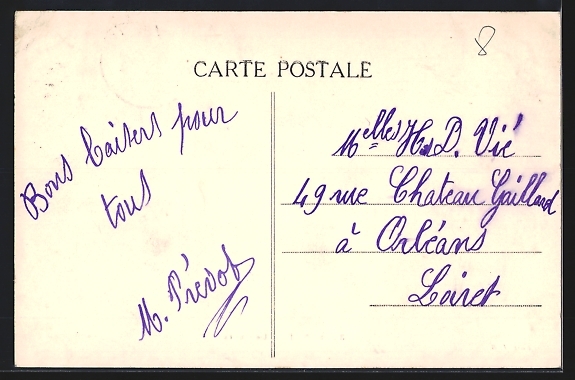 8
CARTE POSTALE
Bons baisers pour
tous
M. Prévot
Melles H. D. Vié
49 rue Chateau Gaillard
à Orléans
Loiret